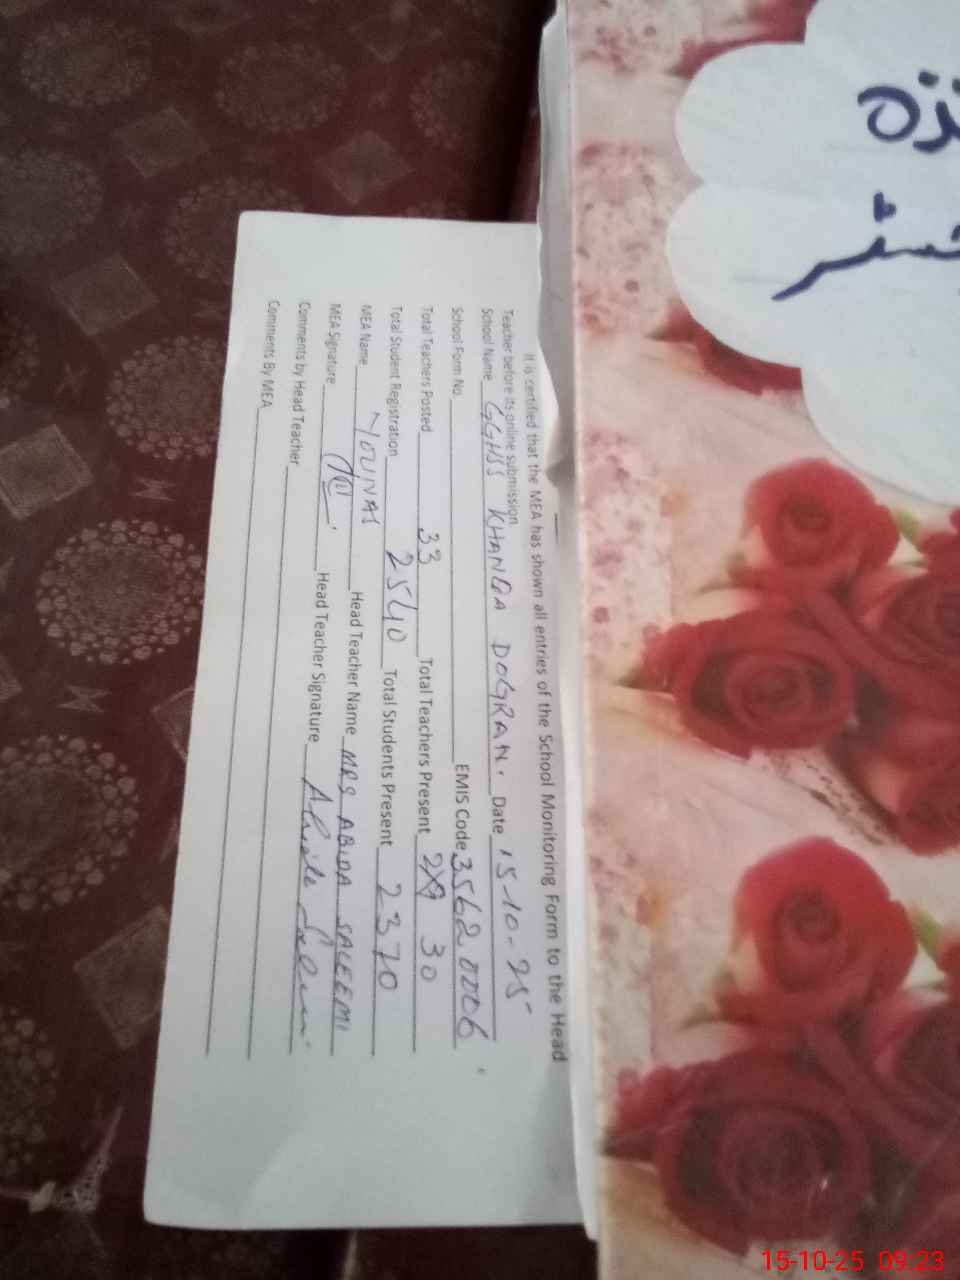 It is certified that the MEA has shown all entries of the School Monitoring Form to the Head
Teacher before its online submission
School Name GGHSS KHANQA DOGRAN. Date 15-10-25
School Form No. EMIS Code 35620006
Total Teachers Posted 33 Total Teachers Present 29 30
Total Student Registration 2540 Total Students Present 2370
MEA Name YOUNAS Head Teacher Name MRS ABIDA SALEEMI
MEA Signature Head Teacher Signature Abida Saleemi
Comments by Head Teacher
Comments By MEA
15-10-25 09:23